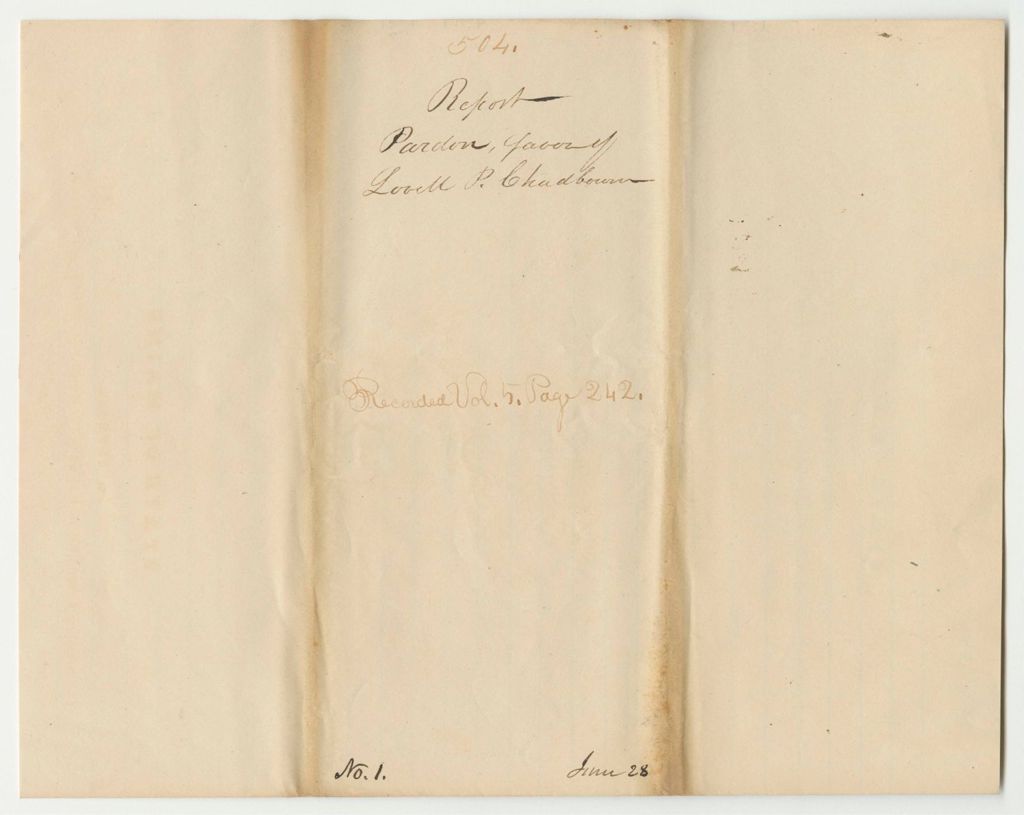 504.
Report
Pardon, favor of
Lovell P. Chadbourn
Recorded Vol. 5. Page 242.
No. 1. June 28